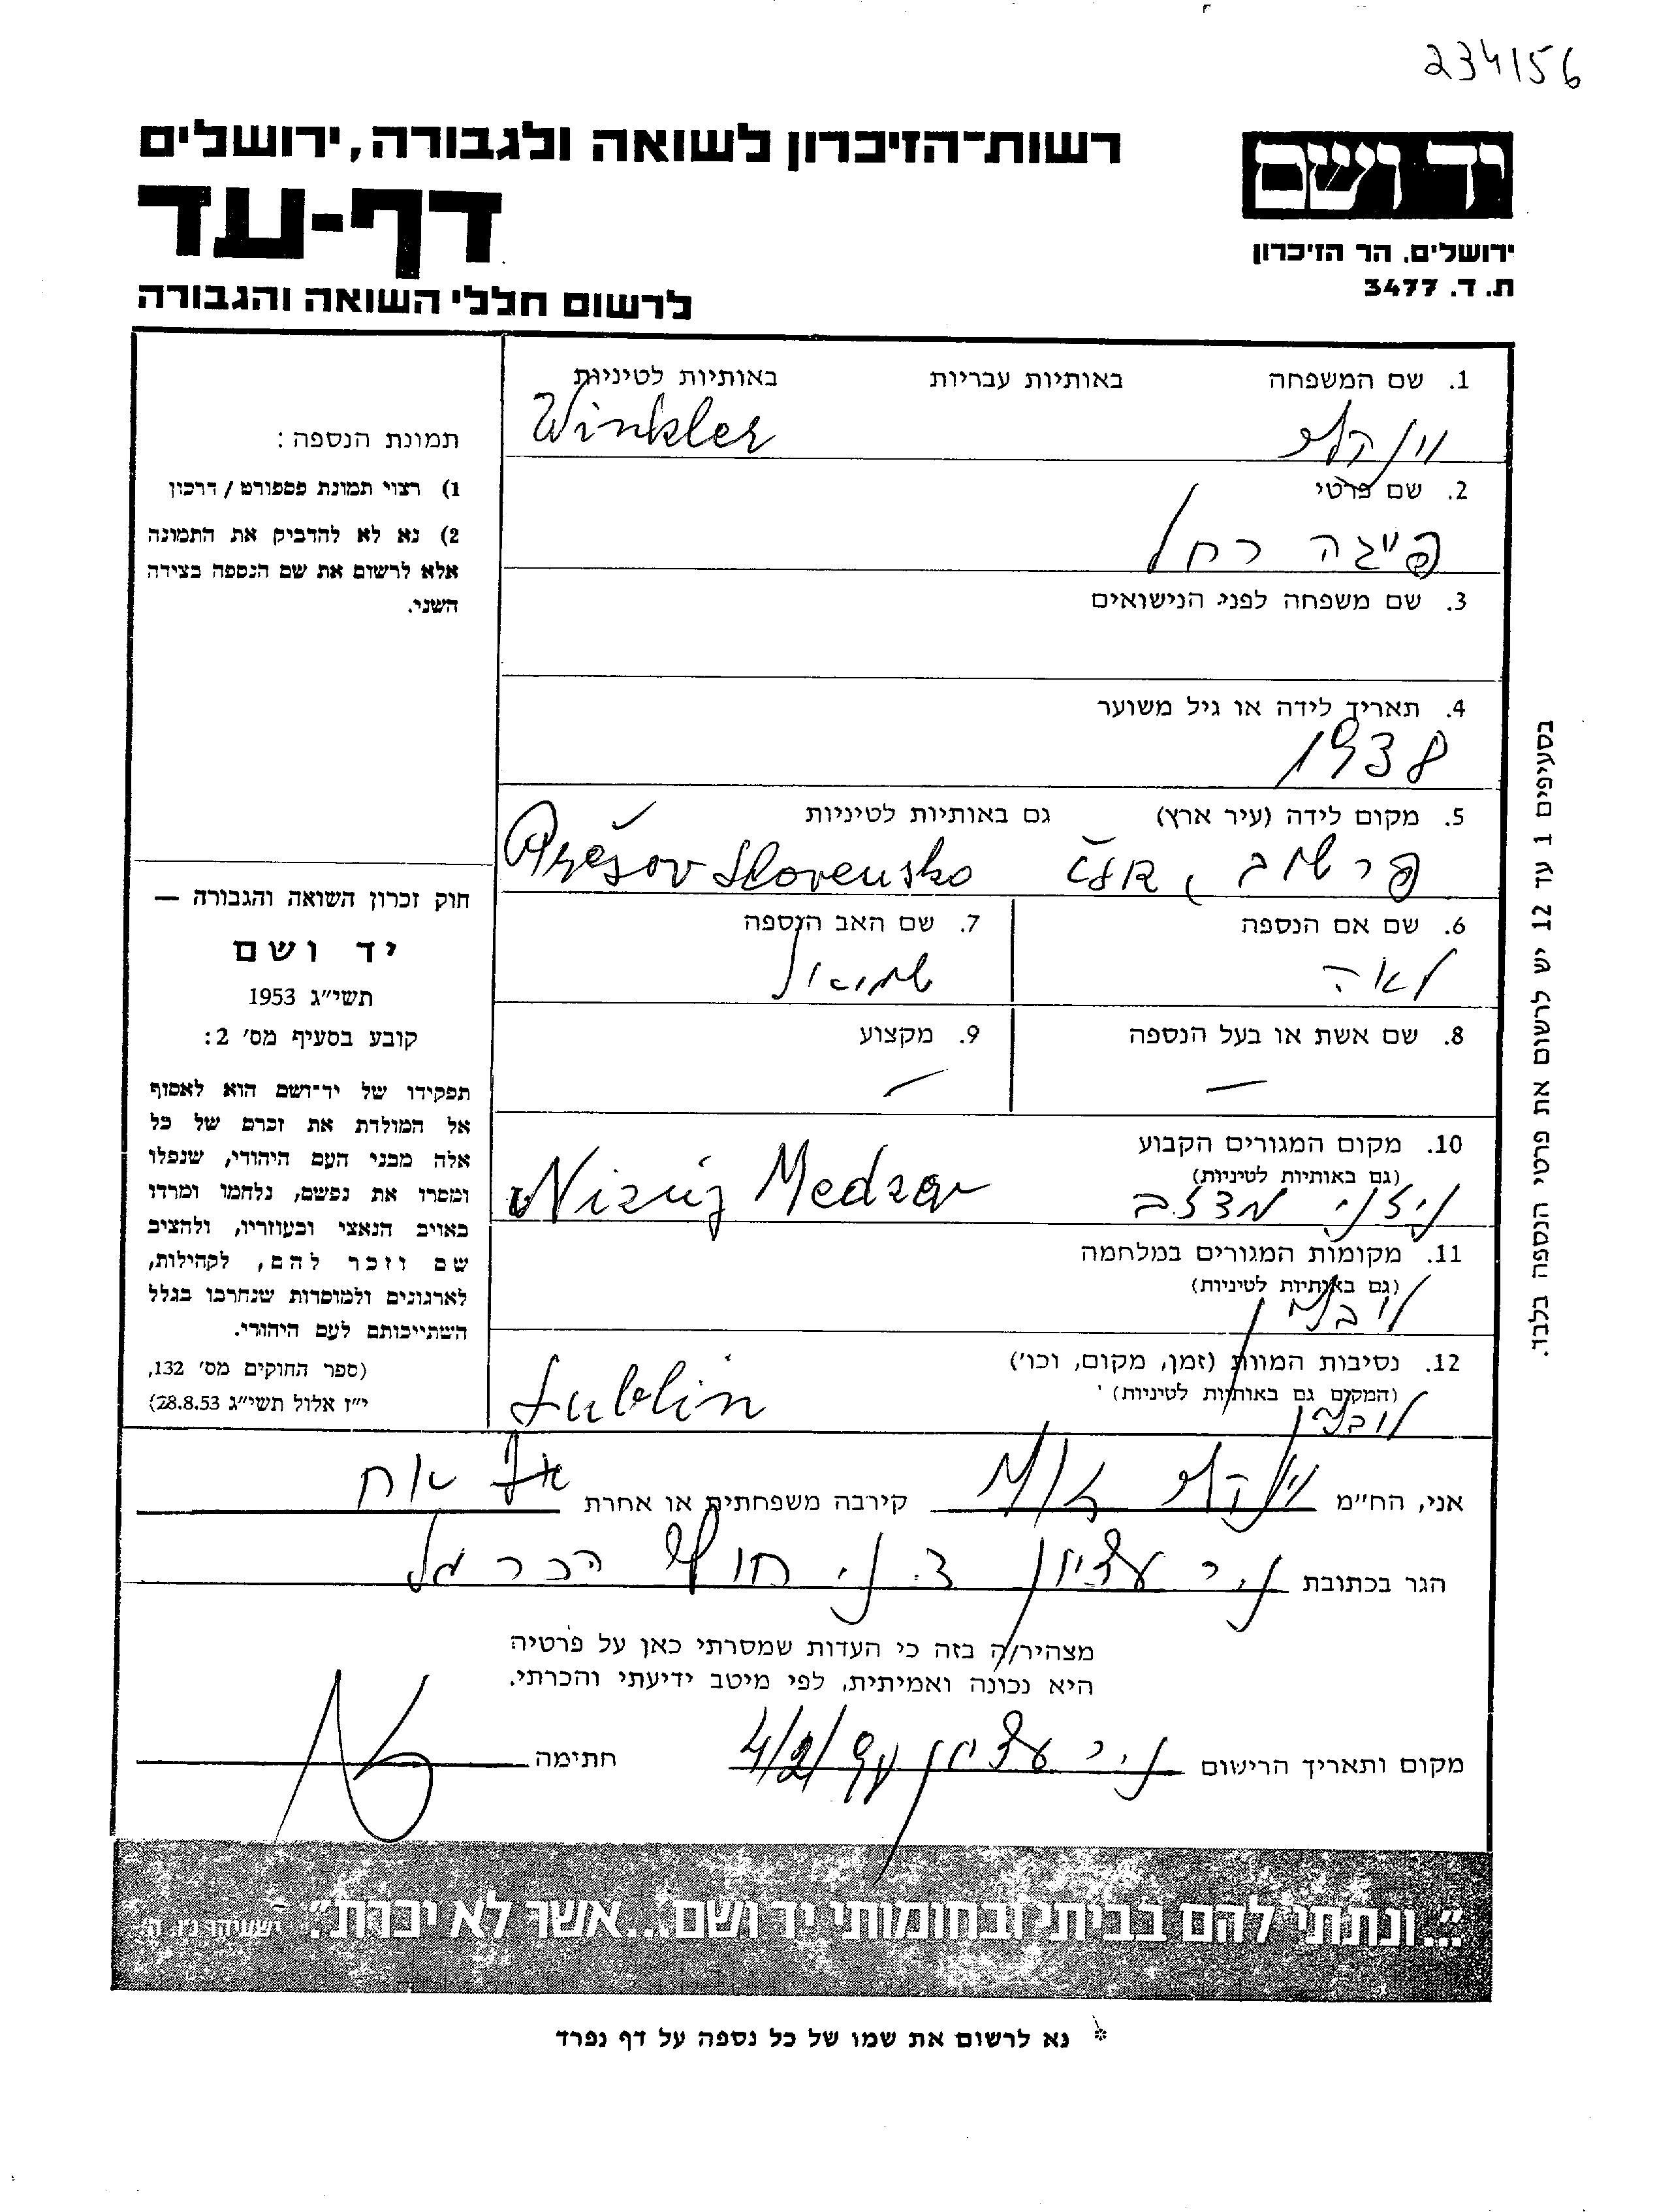 234156
רשות־הזיכרון לשואה ולגבורה, ירושלים
דף-עד
לרשום חללי השואה והגבורה
יד ושם
ירושלים. הר הזיכרון
ת. ד. 3477
1. שם המשפחה באותיות עבריות באותיות לטיניות
וינקלר Winkler
2. שם פרטי
פייגה רחל
3. שם משפחה לפני הנישואים
4. תאריך לידה או גיל משוער
1938
5. מקום לידה (עיר ארץ) גם באותיות לטיניות
פרשוב, Prešov Slovensko
6. שם אם הנספה 7. שם האב הנספה
לאה שמואל
8. שם אשת או בעל הנספה 9. מקצוע
— —
10. מקום המגורים הקבוע
(גם באותיות לטיניות)
ניזני מדזב Nizńy Medzav
11. מקומות המגורים במלחמה
(גם באותיות לטיניות)
לובלין
12. נסיבות המוות (זמן, מקום, וכו')
(המקום גם באותיות לטיניות)
לובלין Lublin
תמונת הנספה:
1) רצוי תמונת פספורט / דרכון
2) נא לא להדביק את התמונה
אלא לרשום את שם הנספה בצידה
השני.
חוק זכרון השואה והגבורה —
יד ושם
תשי"ג 1953
קובע בסעיף מס' 2:
תפקידו של יד־ושם הוא לאסוף
אל המולדת את זכרם של כל
אלה מבני העם היהודי, שנפלו
ומסרו את נפשם, נלחמו ומרדו
באויב הנאצי ובעוזריו, ולהציב
שם וזכר להם, לקהילות,
לארגונים ולמוסדות שנחרבו בגלל
השתייכותם לעם היהודי.
(ספר החוקים מס' 132,
י"ז אלול תשי"ג 28.8.53)
בסעיפים 1 עד 12 יש לרשום את פרטי הנספה בלבד.
אני, הח"מ וינקלר קירבה משפחתית או אחרת אח
הגר בכתובת ניר עציון ד.נ. חוף הכרמל
מצהיר/ה בזה כי העדות שמסרתי כאן על פרטיה
היא נכונה ואמיתית, לפי מיטב ידיעתי והכרתי.
מקום ותאריך הרישום ניר עציון 4/2/99 חתימה
"...ונתתי להם בביתי ובחומותי יד ושם...אשר לא יכרת". ישעיהו נ"ו, ה'
* נא לרשום את שמו של כל נספה על דף נפרד